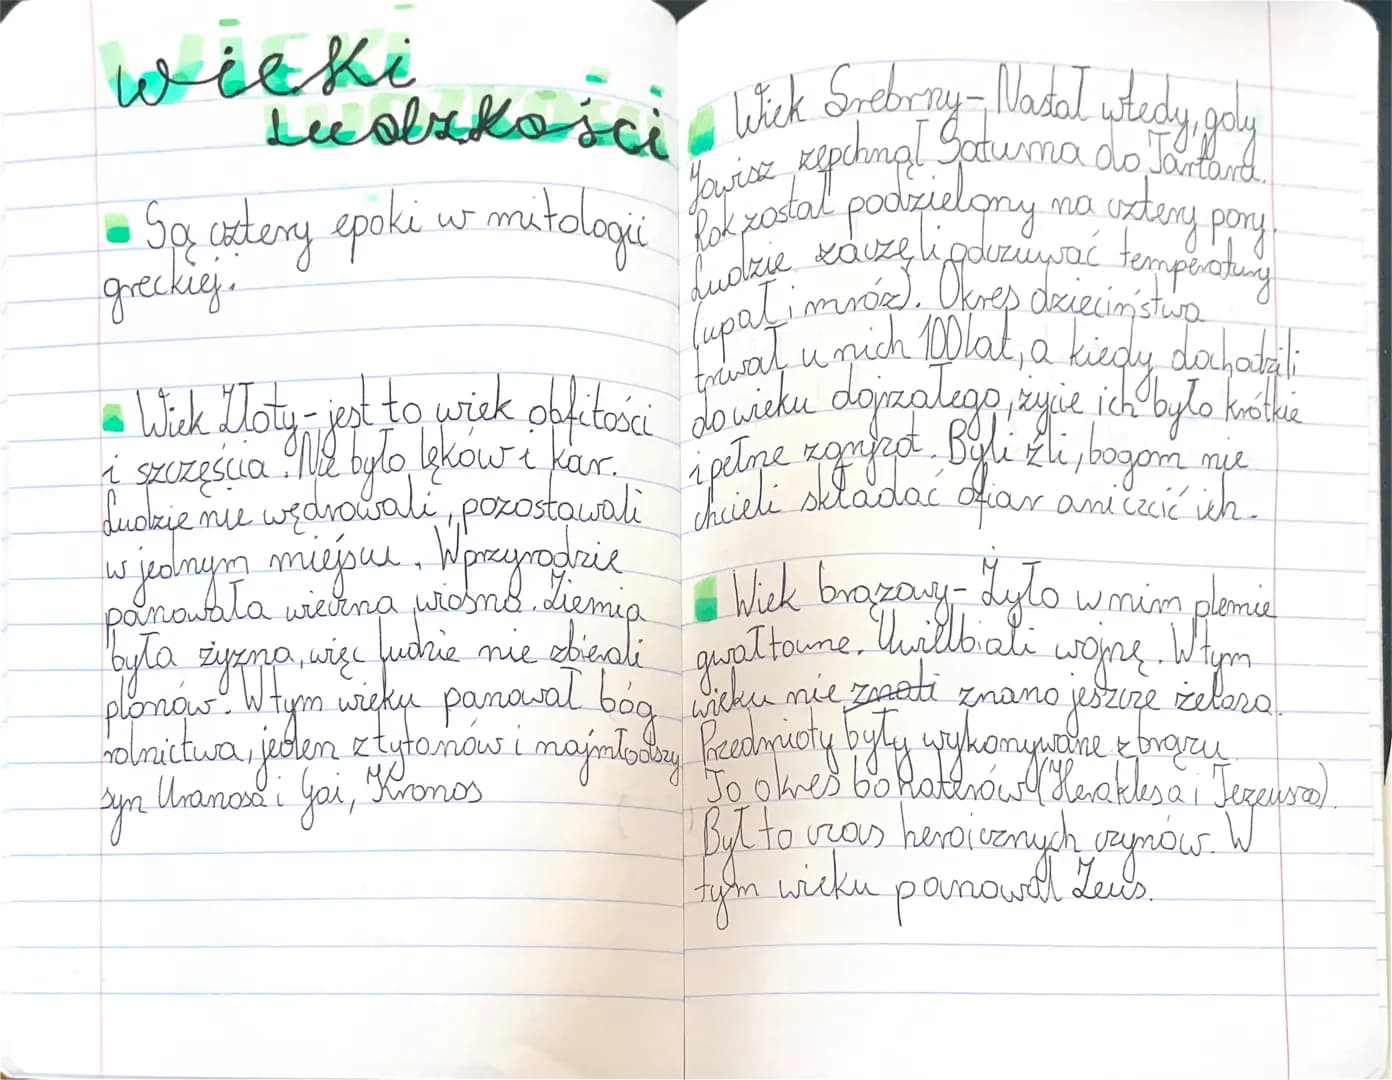 Wieki
Ludzkości
Są cztery epoki w mitologii
greckiej.
Wiek Złoty - jest to wiek obfitości
i szczęścia. Nie było lęków i kar.
Ludzie nie wędrowali, pozostawali
w jednym miejscu. W przyrodzie
panowała wieczna wiosna. Ziemia
była żyzna, więc ludzie nie zbierali
plonów. W tym wieku panował bóg
rolnictwa, jeden z tytanów i najmłodszy
syn Uranosa i Gai, Kronos
Wiek Srebrny - Nastał wtedy, gdy
Jowisz zepchnął Saturna do Tartaru.
Rok został podzielony na cztery pory.
Ludzie zaczęli odczuwać temperatury
(upał i mróz). Okres dzieciństwa
trwał u nich 100 lat, a kiedy dochodzili
do wieku dojrzałego, życie ich było krótkie
i pełne zgryzot. Byli źli, bogom nie
chcieli składać ofiar ani czcić ich.
Wiek brązowy - Żyło w nim plemie
gwałtowne. Uwielbiali wojnę. W tym
wieku nie znali znano jeszcze żelaza.
Przedmioty były wykonywane z brązu.
To okres bohaterów (Heraklesa i Tezeusza).
Był to czas heroicznych czynów. W
tym wieku panował Zeus.